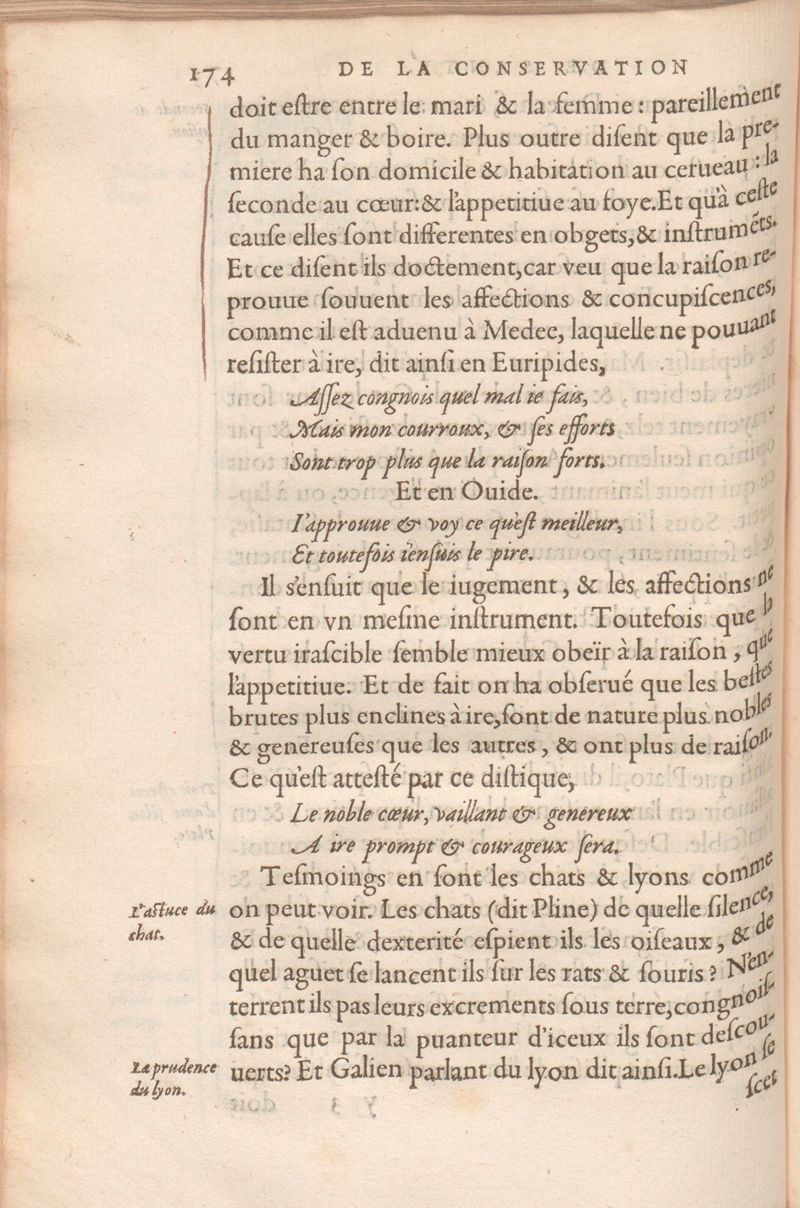 174 DE LA CONSERVATION
doit eſtre entre le mari & la femme : pareillement
du manger & boire. Plus outre diſent que la pre-
miere ha ſon domicile & habitation au cerueau : la
ſeconde au cœur:& l'appetitiue au foye.Et qu'à ceſte
cauſe elles ſont differentes en obgets,& inſtrumẽts.
Et ce diſent ils doctement,car veu que la raiſon re-
prouue ſouuent les affections & concupiſcences,
comme il eſt aduenu à Medee, laquelle ne pouuant
reſiſter à ire, dit ainſi en Euripides,
Aſſez congnois quel mal ie fais,
Mais mon courroux, & ſes efforts
Sont trop plus que la raiſon forts.
Et en Ouide.
I'approuue & voy ce qu'eſt meilleur,
Et toutefois i'enſuis le pire.
Il s'enſuit que le iugement, & les affections ne
ſont en vn meſme inſtrument. Toutefois que la
vertu iraſcible ſemble mieux obeïr à la raiſon, que
l'appetitiue. Et de fait on ha obſerué que les beſtes
brutes plus enclines à ire,ſont de nature plus nobles
& genereuſes que les autres, & ont plus de raiſon.
Ce qu'eſt atteſté par ce diſtique,
Le noble cœur, vaillant & genereux
A ire prompt & courageux ſera.
Teſmoings en ſont les chats & lyons comme
L'aſtuce du
chat.
on peut voir. Les chats (dit Pline) de quelle ſilence,
& de quelle dexterité eſpient ils les oiſeaux, & de
quel aguet ſe lancent ils ſur les rats & ſouris ? N'en-
terrent ils pas leurs excrements ſous terre,congnoiſ-
ſans que par la puanteur d'iceux ils ſont deſcou-
La prudence
du lyon.
uerts? Et Galien parlant du lyon dit ainſi.Le lyon ſe
ſcet